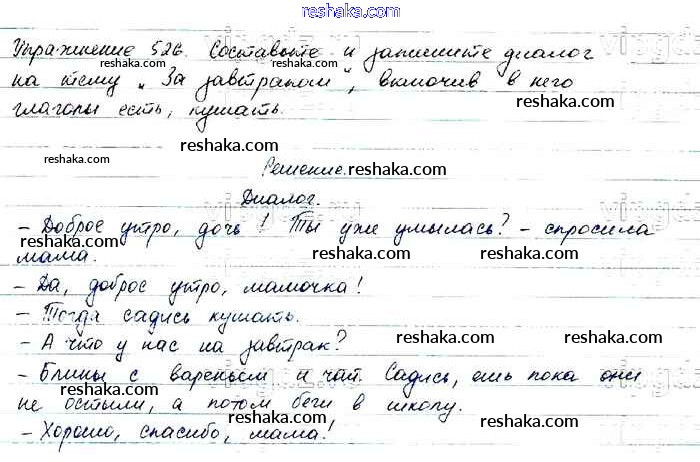 reshaka.com
Упражнение 526. Составьте и запишите диалог
reshaka.com
на тему „За завтраком", включив в него
reshaka.com
глаголы есть, кушать.
reshaka.com
reshaka.com
Решение. reshaka.com
Диалог.
- Доброе утро, дочь! Ты уже умылась? - спросила
reshaka.com reshaka.com
мама.
- Да, доброе утро, мамочка! reshaka.com
- Тогда садись кушать.
reshaka.com
- А что у нас на завтрак? reshaka.com
- Блины с вареньем и чай. Садись, ешь пока они
reshaka.com
не остыли, а потом беги в школу.
reshaka.com
- Хорошо, спасибо, мама! reshaka.com
reshaka.com